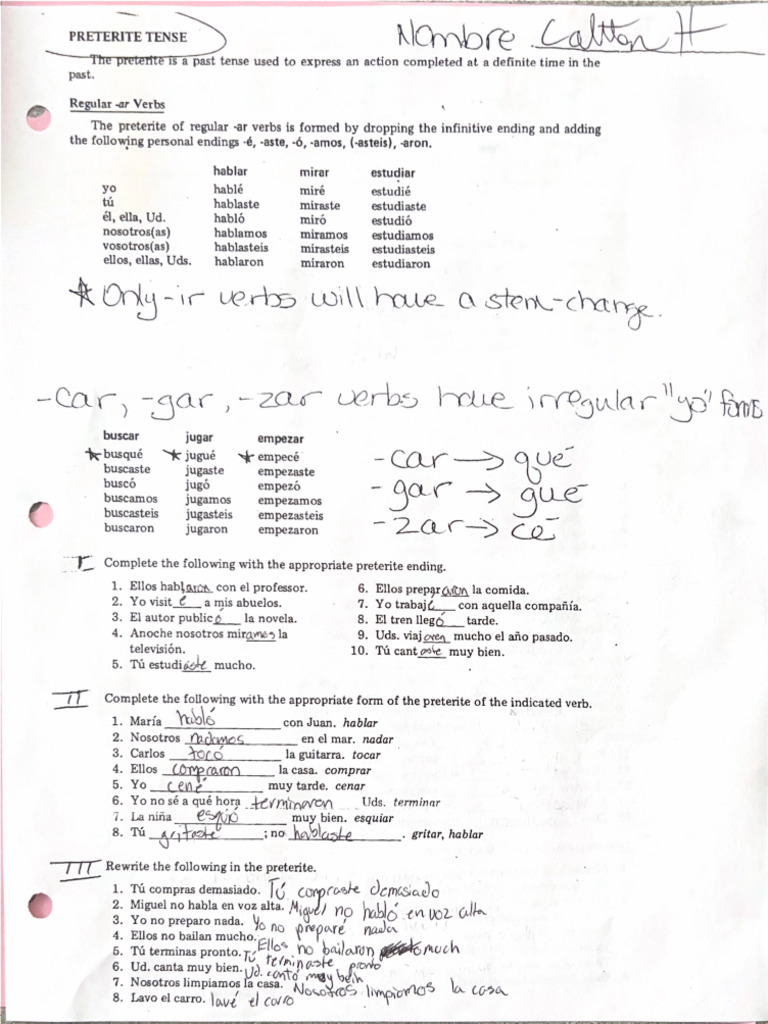 PRETERITE TENSE
Nombre Caltton H
The preterite is a past tense used to express an action completed at a definite time in the
past.
Regular -ar Verbs
The preterite of regular -ar verbs is formed by dropping the infinitive ending and adding
the following personal endings -é, -aste, -ó, -amos, (-asteis), -aron.
hablar mirar estudiar
yo hablé miré estudié
tú hablaste miraste estudiaste
él, ella, Ud. habló miró estudió
nosotros(as) hablamos miramos estudiamos
vosotros(as) hablasteis mirasteis estudiasteis
ellos, ellas, Uds. hablaron miraron estudiaron
* Only -ir verbs will have a stem-change.
-car, -gar, -zar verbs have irregular "yo" forms
buscar jugar empezar
* busqué * jugué * empecé
buscaste jugaste empezaste
buscó jugó empezó
buscamos jugamos empezamos
buscasteis jugasteis empezasteis
buscaron jugaron empezaron
-car → qué
-gar → gué
-zar → cé
I Complete the following with the appropriate preterite ending.
1. Ellos hablaron con el professor.
2. Yo visit é a mis abuelos.
3. El autor public ó la novela.
4. Anoche nosotros miramos la
televisión.
5. Tú estudiaste mucho.
6. Ellos prepararon la comida.
7. Yo trabajé con aquella compañía.
8. El tren llegó tarde.
9. Uds. viajaren mucho el año pasado.
10. Tú cantaste muy bien.
II Complete the following with the appropriate form of the preterite of the indicated verb.
1. María habló con Juan. hablar
2. Nosotros nadamos en el mar. nadar
3. Carlos tocó la guitarra. tocar
4. Ellos compraron la casa. comprar
5. Yo cené muy tarde. cenar
6. Yo no sé a qué hora terminaron Uds. terminar
7. La niña esquió muy bien. esquiar
8. Tú gritaste ; no hablaste . gritar, hablar
III Rewrite the following in the preterite.
1. Tú compras demasiado. Tú compraste demasiado
2. Miguel no habla en voz alta. Miguel no habló en voz alta
3. Yo no preparo nada. Yo no preparé nada
4. Ellos no bailan mucho. Ellos no bailaron much
5. Tú terminas pronto. Tú terminaste pronto
6. Ud. canta muy bien. Ud. cantó muy bein
7. Nosotros limpiamos la casa. Nosotros limpiamos la casa
8. Lavo el carro. lavé el carro